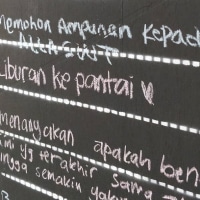 memohon Ampunan Kepad
Allah SWT
Liburan ke pantai
menanyakan apakah ben
ami yg terakhir sama
ngga semakin yaku